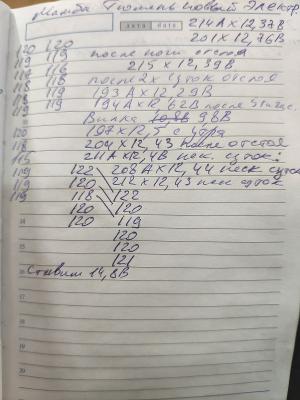 Мамба Тюмень новый электр
дата / date
214А х 12,37В
201 х 12,76В
120 120
119 119 после ночи отстоя
117 119
114 116 215 х 12,39В
118 118 после 2х суток отстоя
118 119 193А х 12,29В
119 119 194А х 12,62В после
Вилка 9,8В
120 197х12,5 с утра
118 204 х 12,43 после отстоя
115 211А х 12,4В неск. суток:
119 122 208А х 12,44 неск суток
119 120 212 х 12,43 нек суток
119 118 122
120 120
120 119
120
120
121
Ставим 14,8В